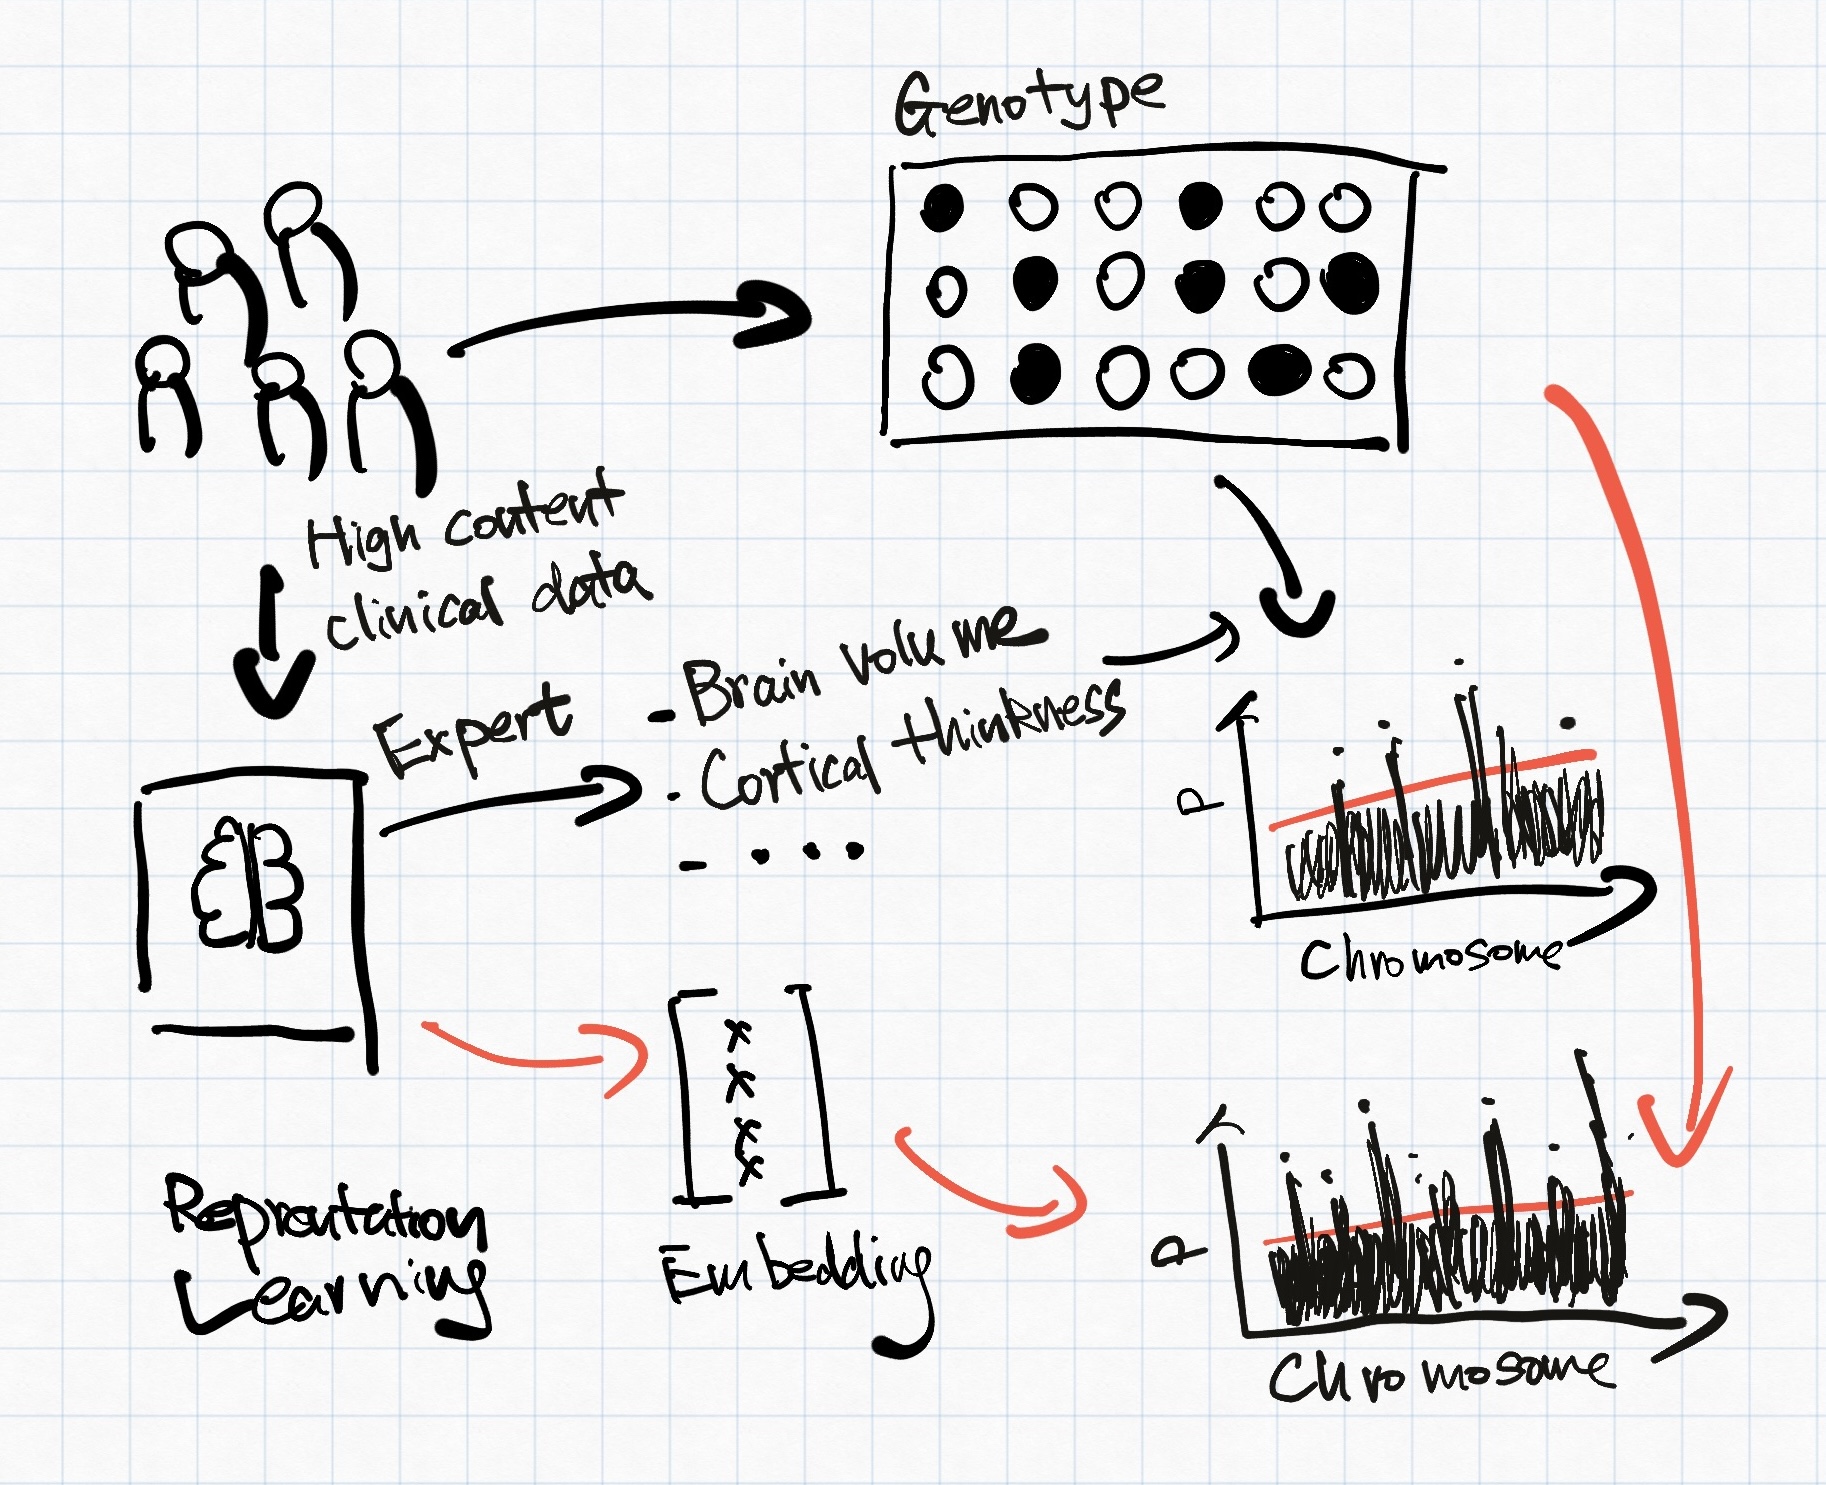 Genotype
High content
clinical data
Expert
- Brain volume
- Cortical thinkness
- ...
P
Chromosome
Reprentation
Learning
Embedding
P
Chromosome